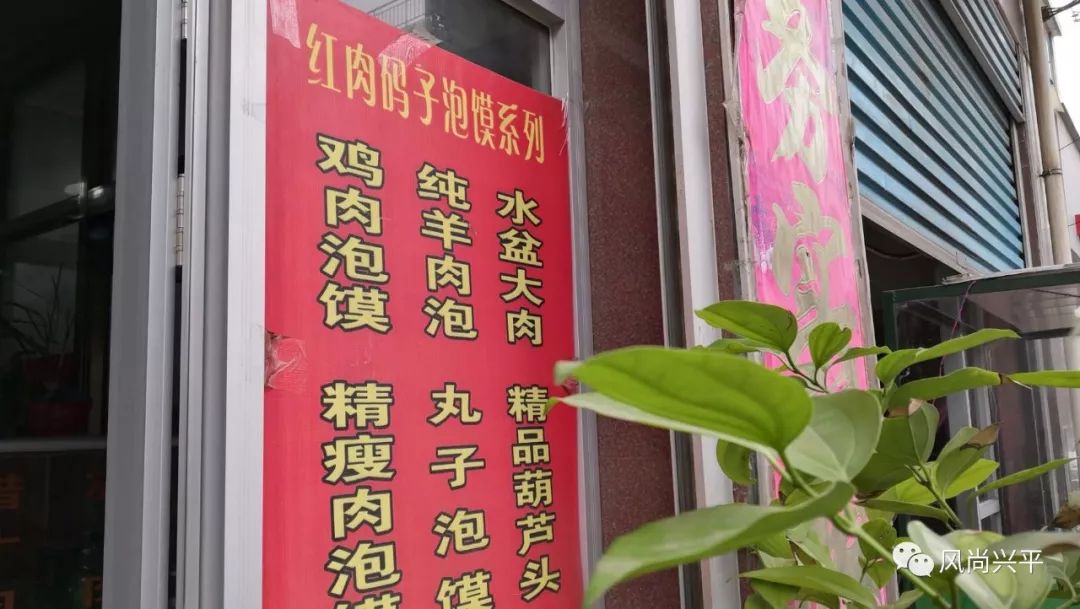 红肉码子泡馍系列
鸡肉泡馍
纯羊肉泡
水盆大肉
精瘦肉泡馍
丸子泡馍
精品葫芦头
风尚兴平